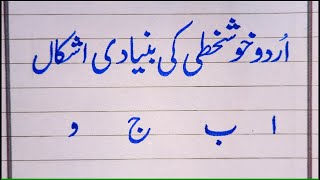 اُردو خوشخطی کی بنیادی اشکال
ا ب ج و